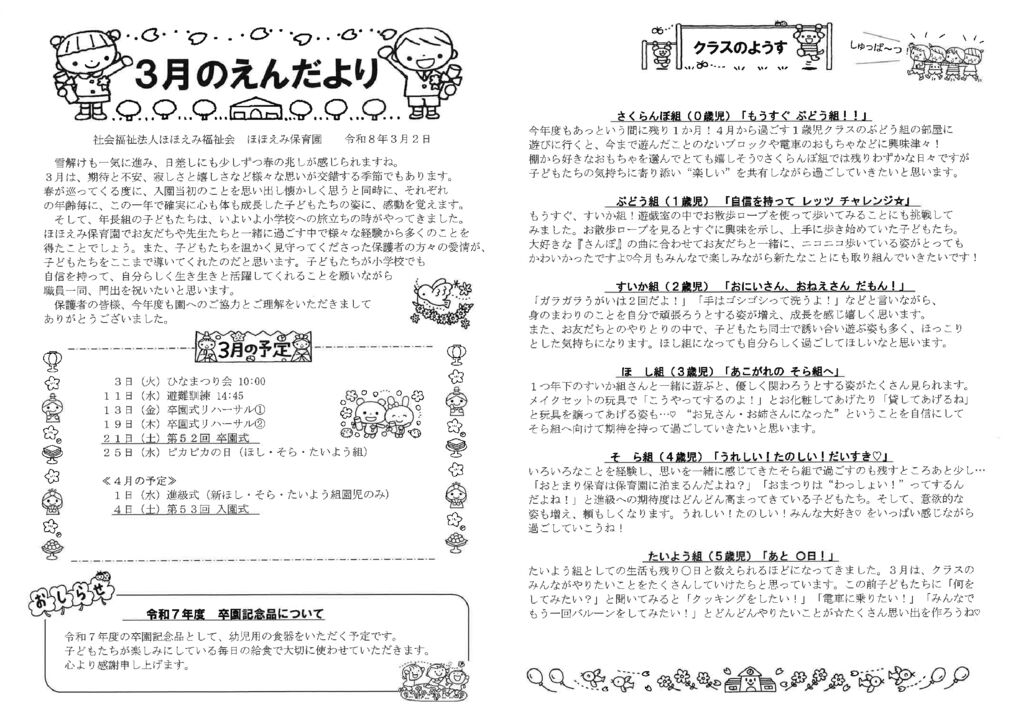 3月のえんだより
社会福祉法人ほほえみ福祉会　ほほえみ保育園　令和8年3月2日
雪解けも一気に進み、日差しにも少しずつ春の兆しが感じられますね。
3月は、期待と不安、寂しさと嬉しさなど様々な思いが交錯する季節でもあります。
春が巡ってくる度に、入園当初のことを思い出し懐かしく思うと同時に、それぞれ
の年齢毎に、この一年で確実に心も体も成長した子どもたちの姿に、感動を覚えます。
そして、年長組の子どもたちは、いよいよ小学校への旅立ちの時がやってきました。
ほほえみ保育園でお友だちや先生たちと一緒に過ごす中で様々な経験から多くのことを
得たことでしょう。また、子どもたちを温かく見守ってくださった保護者の方々の愛情が、
子どもたちをここまで導いてくれたのだと思います。子どもたちが小学校でも
自信を持って、自分らしく生き生きと活躍してくれることを願いながら
職員一同、門出を祝いたいと思います。
保護者の皆様、今年度も園へのご協力とご理解をいただきまして
ありがとうございました。
3月の予定
3日（火）ひなまつり会 10:00
11日（水）避難訓練 14:45
13日（金）卒園式リハーサル①
19日（木）卒園式リハーサル②
21日（土）第52回 卒園式
25日（水）ピカピカの日（ほし・そら・たいよう組）
≪4月の予定≫
1日（水）進級式（新ほし・そら・たいよう組園児のみ）
4日（土）第53回 入園式
おしらせ
令和7年度　卒園記念品について
令和7年度の卒園記念品として、幼児用の食器をいただく予定です。
子どもたちが楽しみにしている毎日の給食で大切に使わせていただきます。
心より感謝申し上げます。
クラスのようす
しゅっぱ～つ！
さくらんぼ組（0歳児）「もうすぐ ぶどう組！！」
今年度もあっという間に残り1か月！4月から過ごす1歳児クラスのぶどう組の部屋に
遊びに行くと、今まで遊んだことのないブロックや電車のおもちゃなどに興味津々！
棚から好きなおもちゃを選んでとても嬉しそう♡さくらんぼ組では残りわずかな日々ですが
子どもたちの気持ちに寄り添い“楽しい”を共有しながら過ごしていきたいと思います。
ぶどう組（1歳児）　「自信を持って レッツ チャレンジ☆」
もうすぐ、すいか組！遊戯室の中でお散歩ロープを使って歩いてみることにも挑戦して
みました。お散歩ロープを見るとすぐに興味を示し、上手に歩き始めていた子どもたち。
大好きな『さんぽ』の曲に合わせてお友だちと一緒に、ニコニコ歩いている姿がとっても
かわいかったですよ♡今月もみんなで楽しみながら新たなことにも取り組んでいきたいです！
すいか組（2歳児）　「おにいさん、おねえさん だもん！」
「ガラガラうがいは2回だよ！」「手はゴシゴシって洗うよ！」などと言いながら、
身のまわりのことを自分で頑張ろうとする姿が増え、成長を感じ嬉しく思います。
また、お友だちとのやりとりの中で、子ども同士で誘い合い遊ぶ姿も多く、ほっこり
とした気持ちになります。ほし組になっても自分らしく過ごしてほしいなと思います。
ほ　し組（3歳児）「あこがれの そら組へ」
1つ年下のすいか組さんと一緒に遊ぶと、優しく関わろうとする姿がたくさん見られます。
メイクセットの玩具で「こうやってするのよ！」とお化粧してあげたり「貸してあげるね」
と玩具を譲ってあげる姿も…♡　“お兄さん・お姉さんになった”ということを自信にして
そら組へ向けて期待を持って過ごしていきたいと思います。
そ　ら組（4歳児）「うれしい！たのしい！だいすき♡」
いろいろなことを経験し、思いを一緒に感じてきたそら組で過ごすのも残すところあと少し…
「おとまり保育は保育園に泊まるんだよね？」「おまつりは“わっしょい！”ってするん
だよね！」と進級への期待度はどんどん高まってきている子どもたち。そして、意欲的な
姿も増え、頼もしくなります。うれしい！たのしい！みんな大好き♡をいっぱい感じながら
過ごしていこうね！
たいよう組（5歳児）「あと 〇日！」
たいよう組としての生活も残り〇日と数えられるほどになってきました。3月は、クラスの
みんながやりたいことをたくさんしていけたらと思っています。この前子どもたちに「何を
してみたい？」と聞いてみると「クッキングをしたい！」「電車に乗りたい！」「みんなで
もう一回バルーンをしてみたい！」とどんどんやりたいことが☆たくさん思い出を作ろうね♡